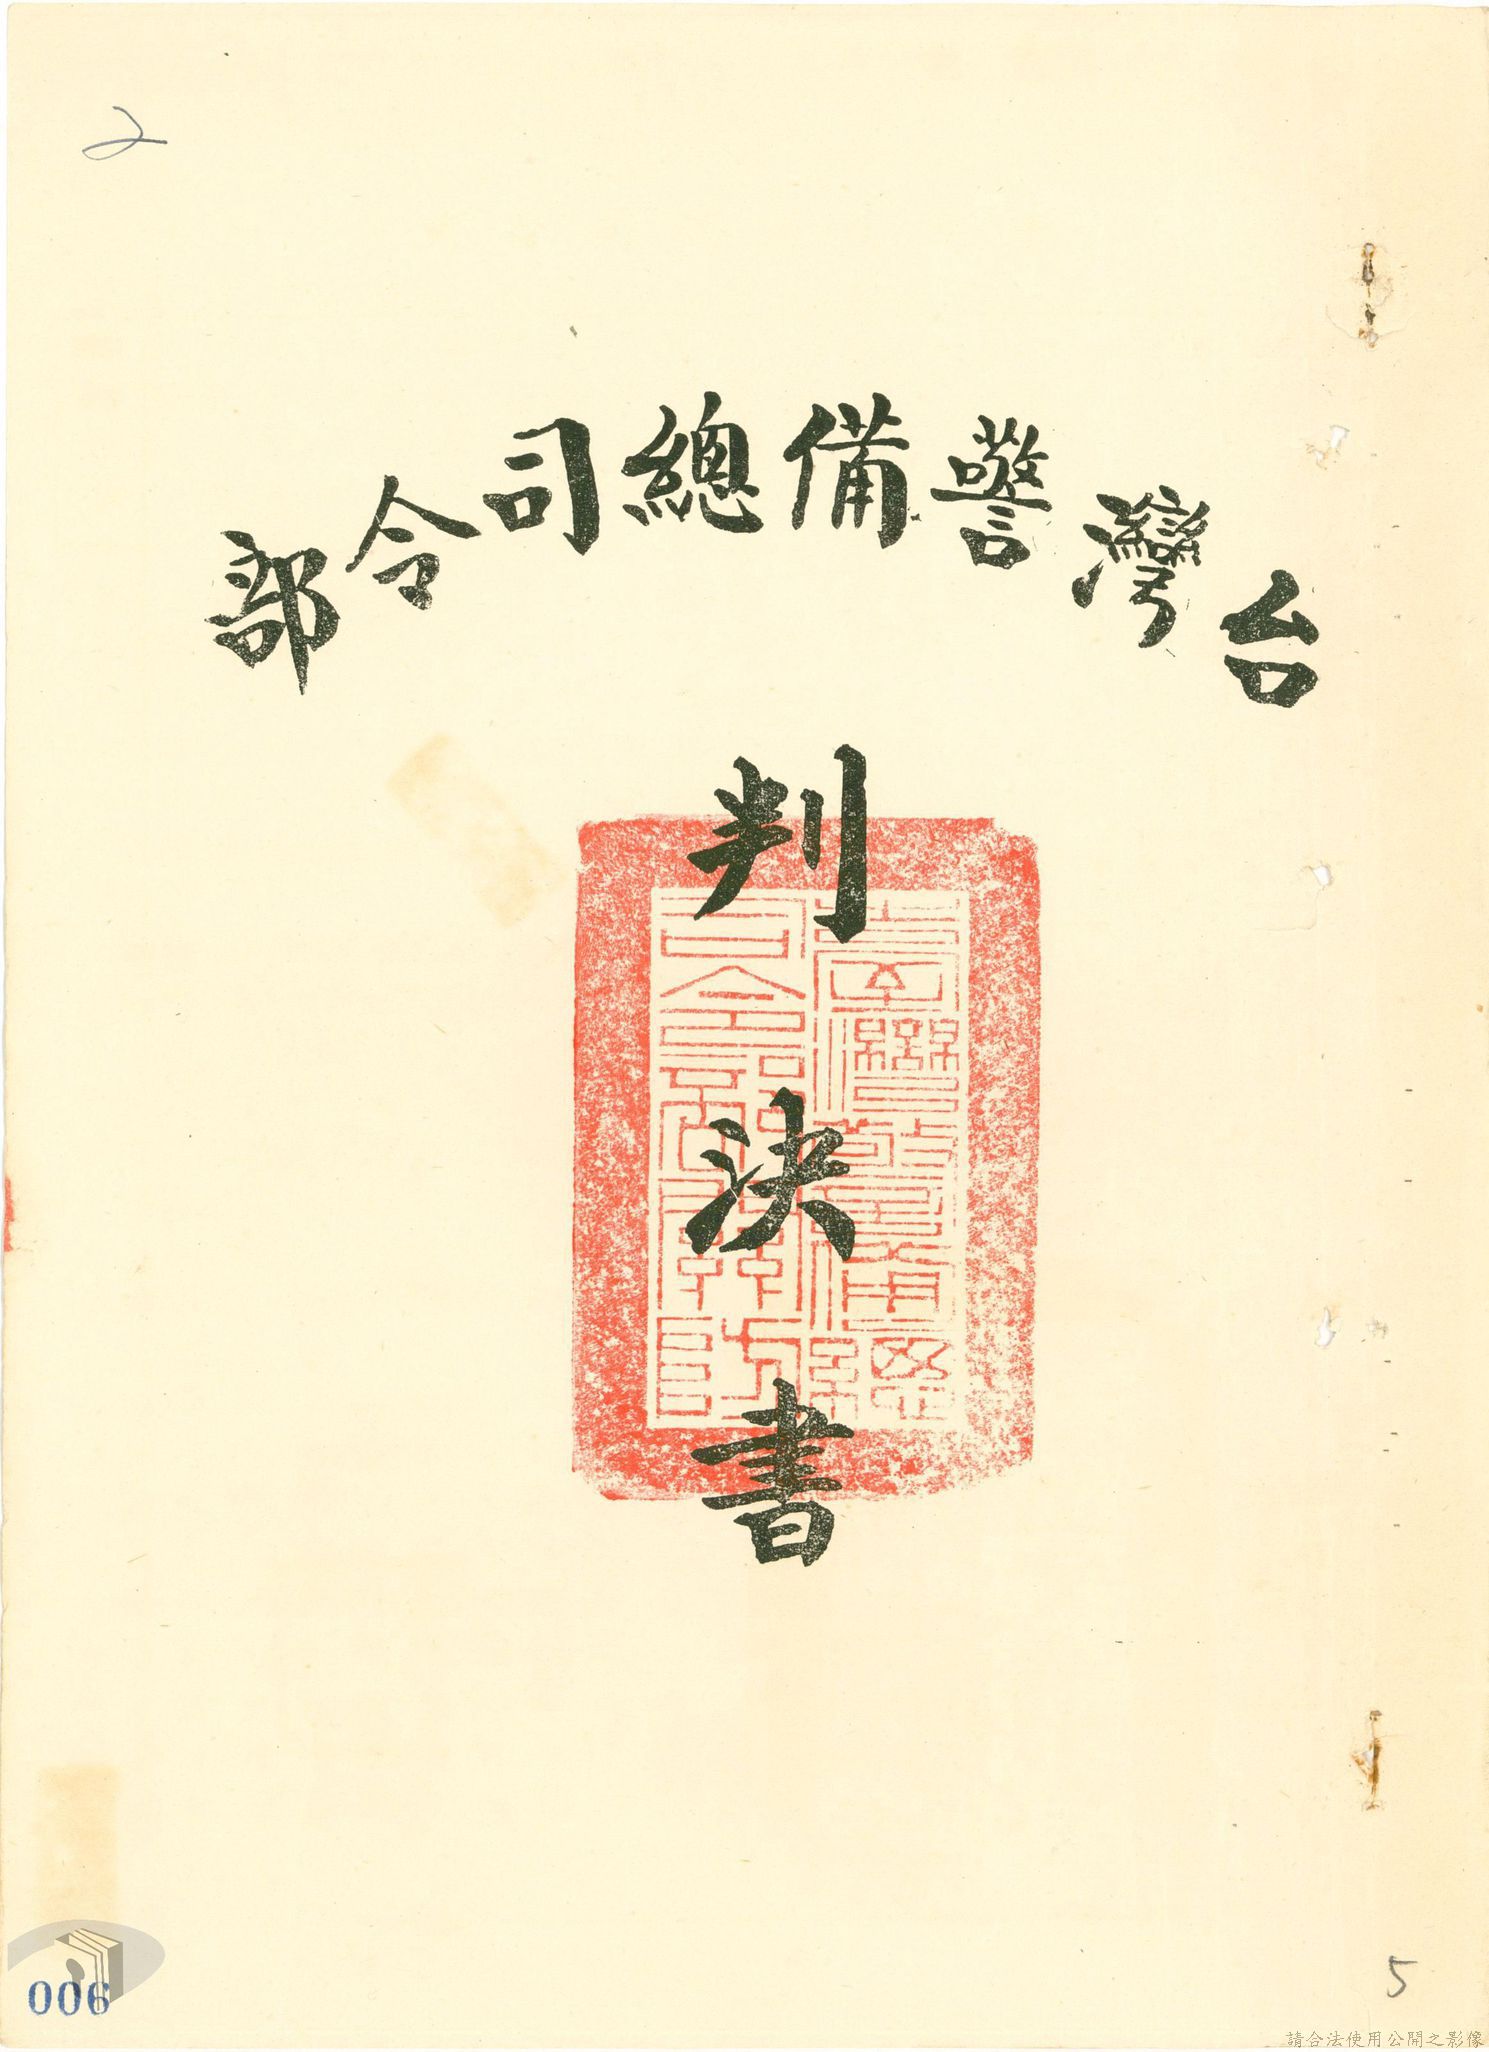 2
台灣警備總司令部
判決書
臺灣警備總
司令部軍法處
006
5
請合法使用公開之影像